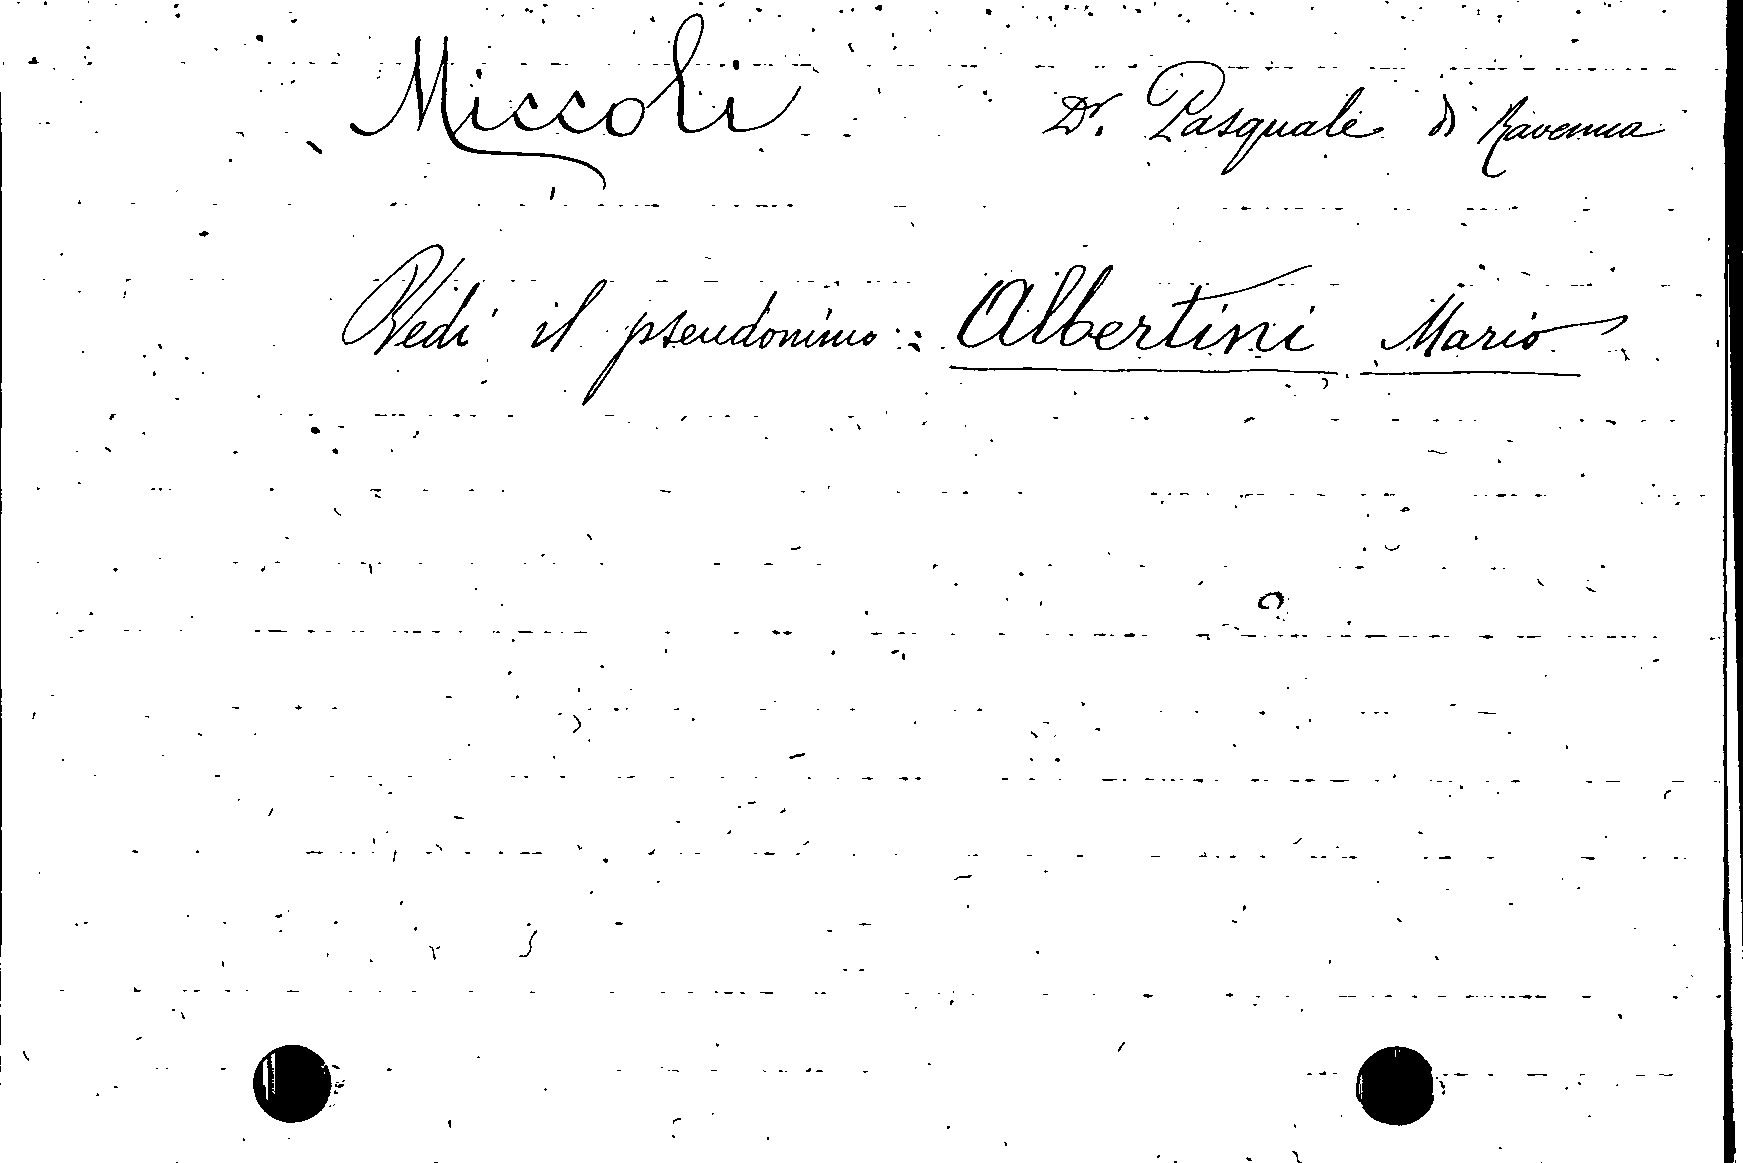 Miccoli Dr. Pasquale di Ravenna
Vedi il pseudonimo: Albertini Mario